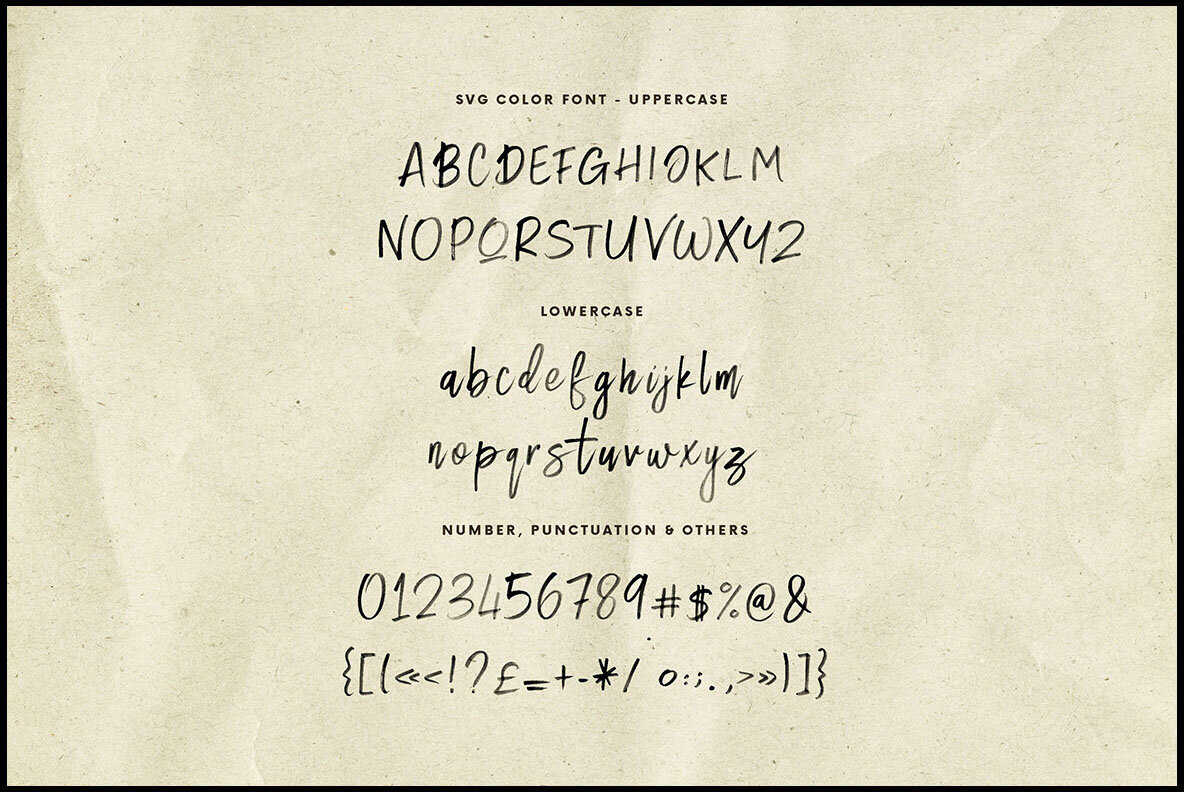 SVG COLOR FONT - UPPERCASE
ABCDEFGHIJKLM
NOPQRSTUVWXYZ
LOWERCASE
abcdefghijklm
nopqrstuvwxyz
NUMBER, PUNCTUATION & OTHERS
0123456789#$%@&
{[(«<!?£=+-*/ o:;.,>»)]}